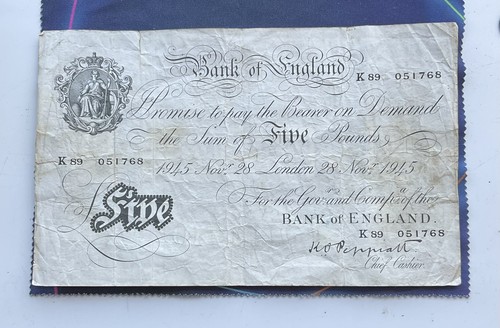 Bank of England K89 051768
I Promise to pay the Bearer on Demand
the Sum of Five Pounds
K89 051768
1945 Novr. 28 London 28 Novr. 1945
For the Govr. and Compa. of the
BANK of ENGLAND.
K89 051768
£ Five
K O Peppiatt
Chief Cashier.